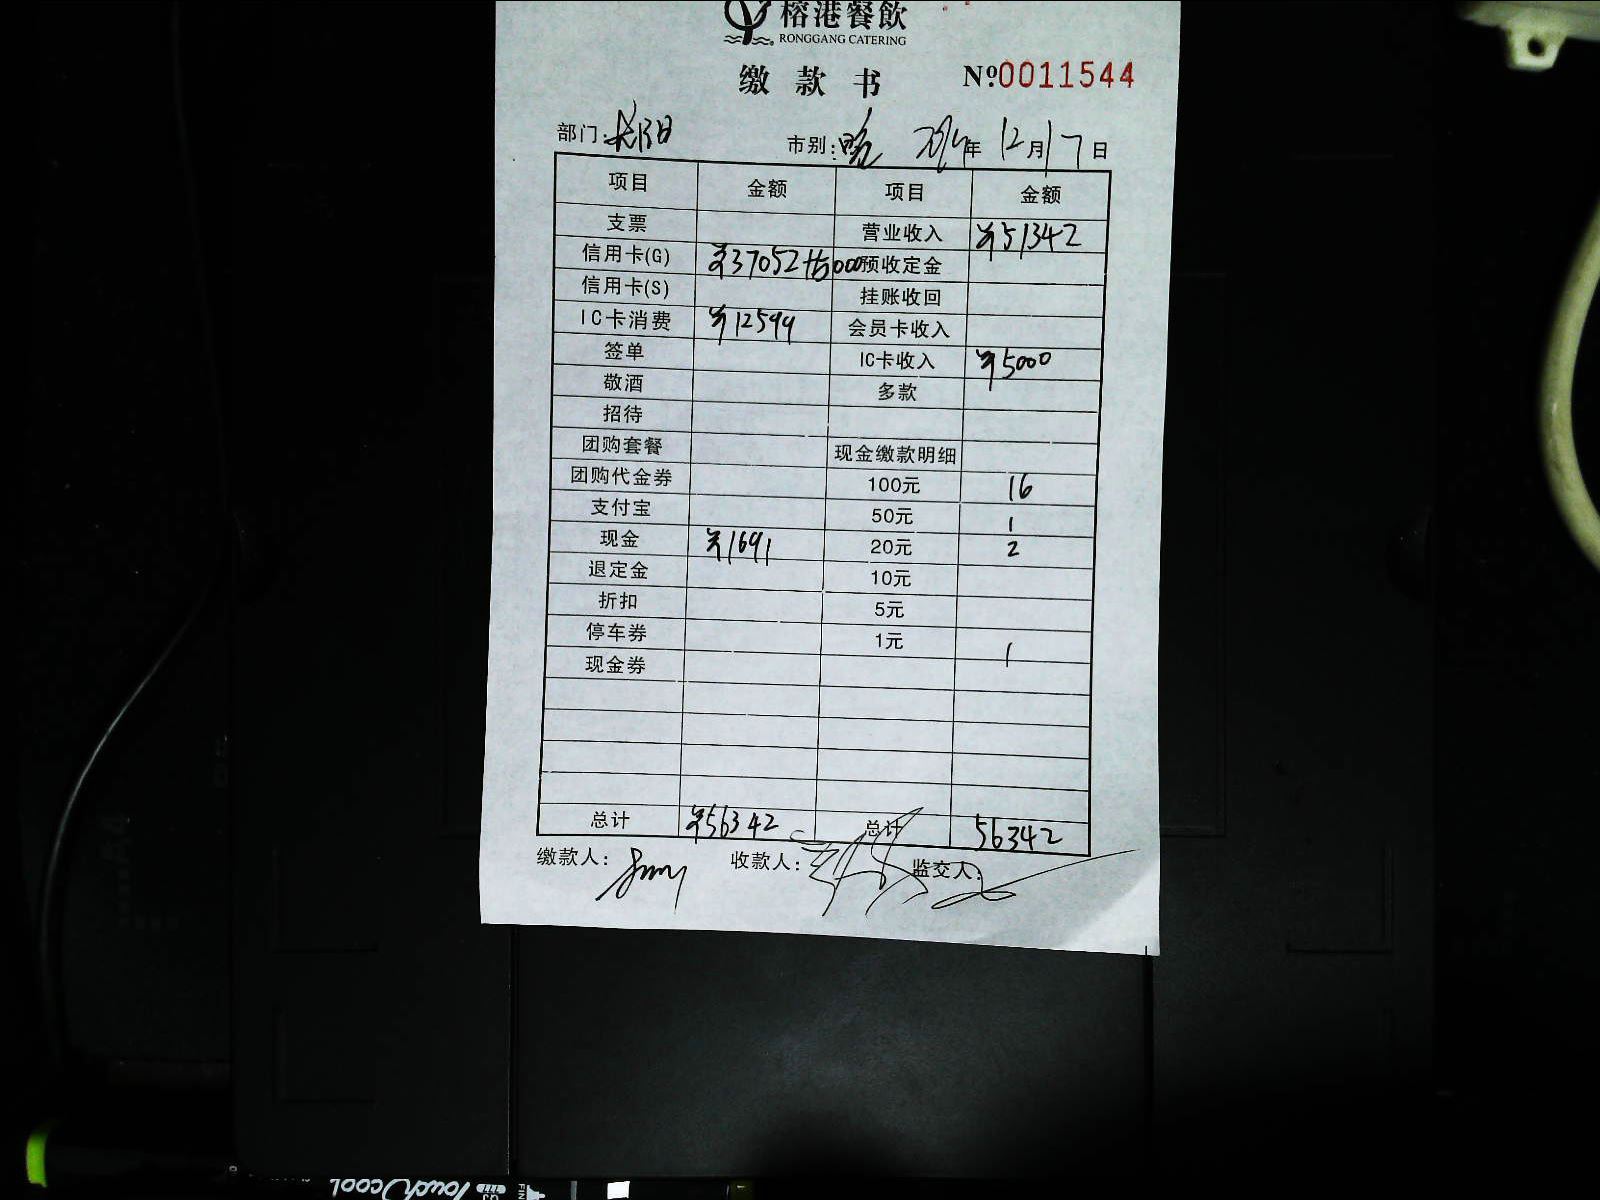 榕港餐飲
RONGGANG CATERING
缴款书 №0011544
部门: 市别: 年 12月17日
项目 金额 项目 金额
支票 营业收入 ¥51342
信用卡(G) ¥37052 5000 预收定金
信用卡(S) 挂账收回
IC卡消费 ¥12599 会员卡收入
签单 IC卡收入 ¥5000
敬酒 多款
招待
团购套餐 现金缴款明细
团购代金券 100元 16
支付宝 50元 1
现金 ¥1691 20元 2
退定金 10元
折扣 5元
停车券 1元 1
现金券
总计 ¥56342 总计 56342
缴款人: 收款人: 监交人:
Touch Cool